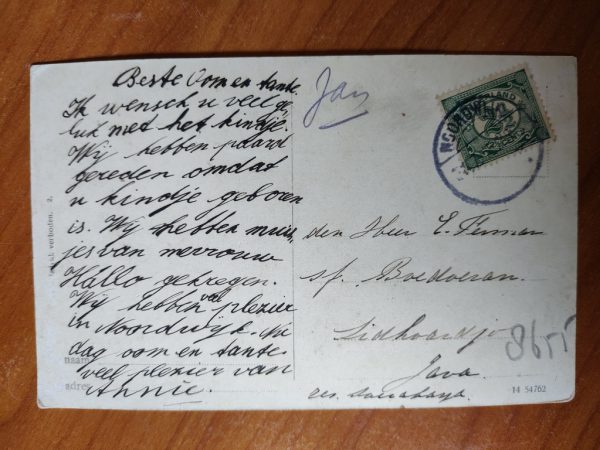 Beste Oom en tante.
Ik wensch u veel ge,
luk met het kindje.
Wij hebben paard
gereden omdat
u kindje geboren
is. Wij hebben muis,
jes van mevrouw
Hallo gekregen.
Wij hebben veel plezier
in Noordwijk. Nu
dag oom en tante
veel plezier van
Annie.
naam
adres
verboden. 2.
Jan
NEDERLAND
den Heer E.
s.f. Boedoeran.
Sidhoardjo
Java.
res. Soerabaya.
8655
14 54762